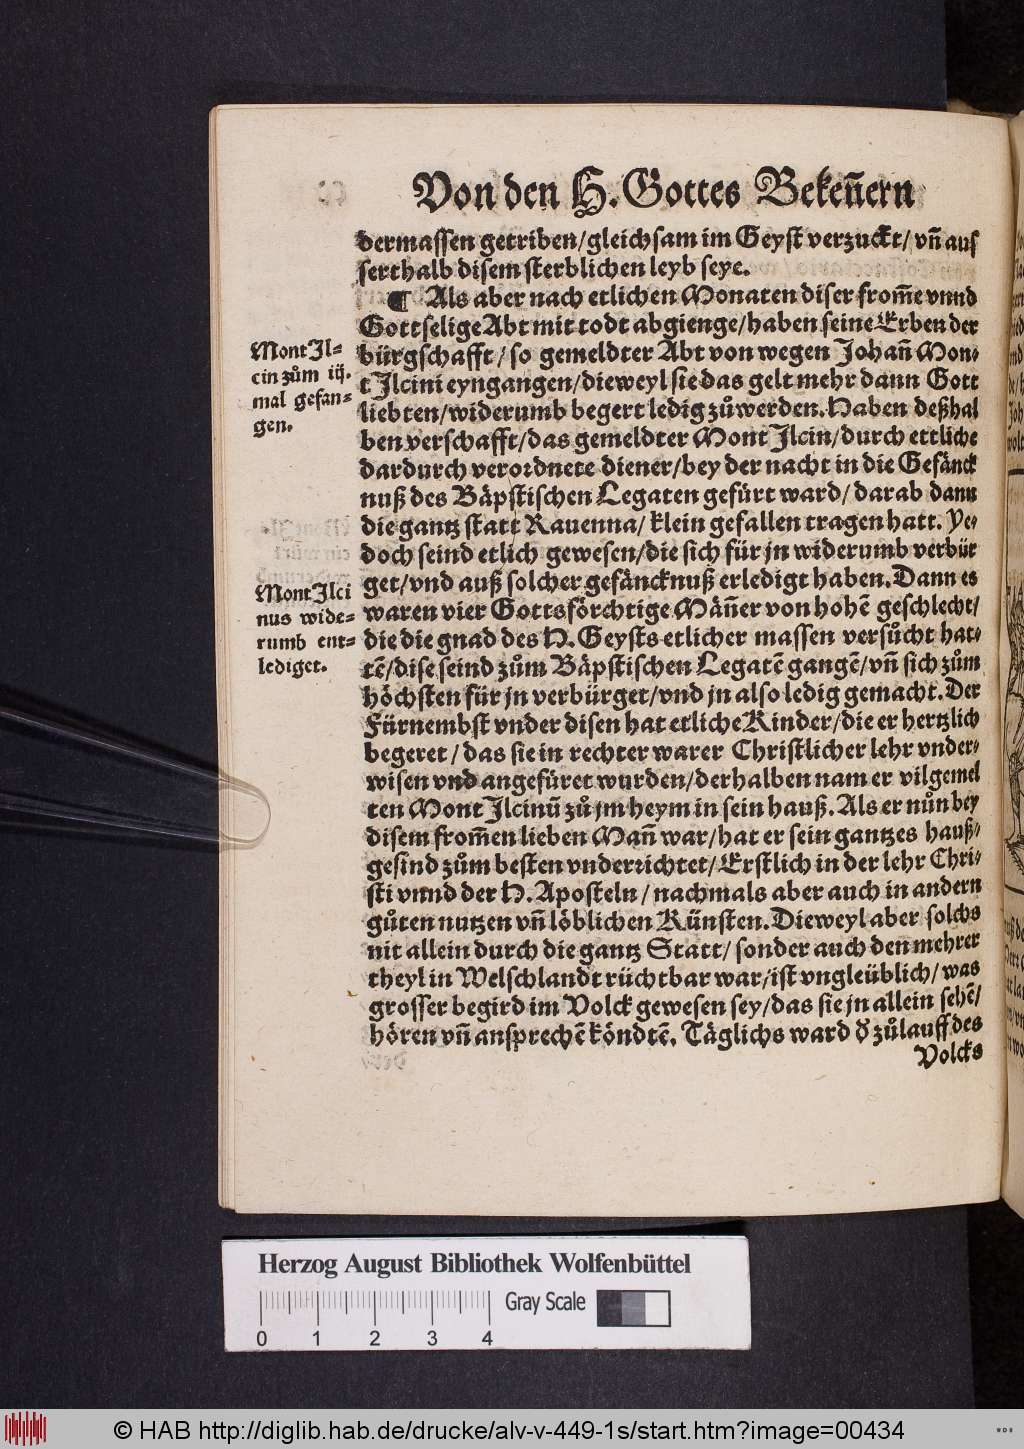 Von den H. Gottes Bekeñern
dermassen getriben/gleichsam im Geyst verzuckt/ vñ aus
serthalb disem sterblichen leyb seye.
¶ Als aber nach etlichen Monaten diser from̃e vnnd
Gottselige Abt mit todt abgienge/haben seine Erben der
bürgschafft/ so gemeldter Abt von wegen Johañ Mon-
t Jlcini eyngangen/dieweyl sie das gelt mehr dann Gott
liebten/widerumb begert ledig zůwerden. Haben deßhal
ben verschafft/das gemeldter Mont Jlcin/durch ettliche
dardurch verordnete diener/bey der nacht in die Gefänck
nuß des Bäpstischen Legaten gefürt ward/ darab dann
die gantz statt Rauenna/ klein gefallen tragen hatt. Ye-
doch seind etlich gewesen/die sich für jn widerumb verbür
get/vnd auß solcher gefäncknuß erledigt haben. Dann es
waren vier Gottsförchtige Mäñer von hohẽ geschlecht/
die die gnad des H. Geysts etlicher massen versůcht hat-
tẽ/dise seind zům Bäpstischen Legatẽ gangẽ/vñ sich zům
höchsten für jn verbürget/vnd jn also ledig gemacht. Der
Fürnembst vnder disen hat etliche Kinder/die er hertzlich
begeret/das sie in rechter warer Christlicher lehr vnder-
wisen vnd angefüret wurden/derhalben nam er vilgemel
ten Mont Jlcinũ zů jm heym in sein hauß. Als er nůn bey
disem from̃en lieben Mañ war/hat er sein gantzes hauß-
gesind zům besten vnderrichtet/ Erstlich in der lehr Chri-
sti vnnd der H. Aposteln/nachmals aber auch in andern
gůten nutzen vñ löblichen Künsten. Dieweyl aber solchs
nit allein durch die gantz Statt/ sonder auch den mehrer
theyl in Welschlandt rüchtbar war/ist vngleüblich/ was
grosser begird im Volck gewesen sey/das sie jn allein sehẽ/
hören vñ ansprechẽ köndtẽ. Täglichs ward d̕ zůlauff des
Volcks
Mont Jl-
cin zům iij.
mal gefan-
gen.
Mont Jlci
nus wide-
rumb ent-
lediget.
Herzog August Bibliothek Wolfenbüttel
Gray Scale
0 1 2 3 4
© HAB http://diglib.hab.de/drucke/alv-v-449-1s/start.htm?image=00434